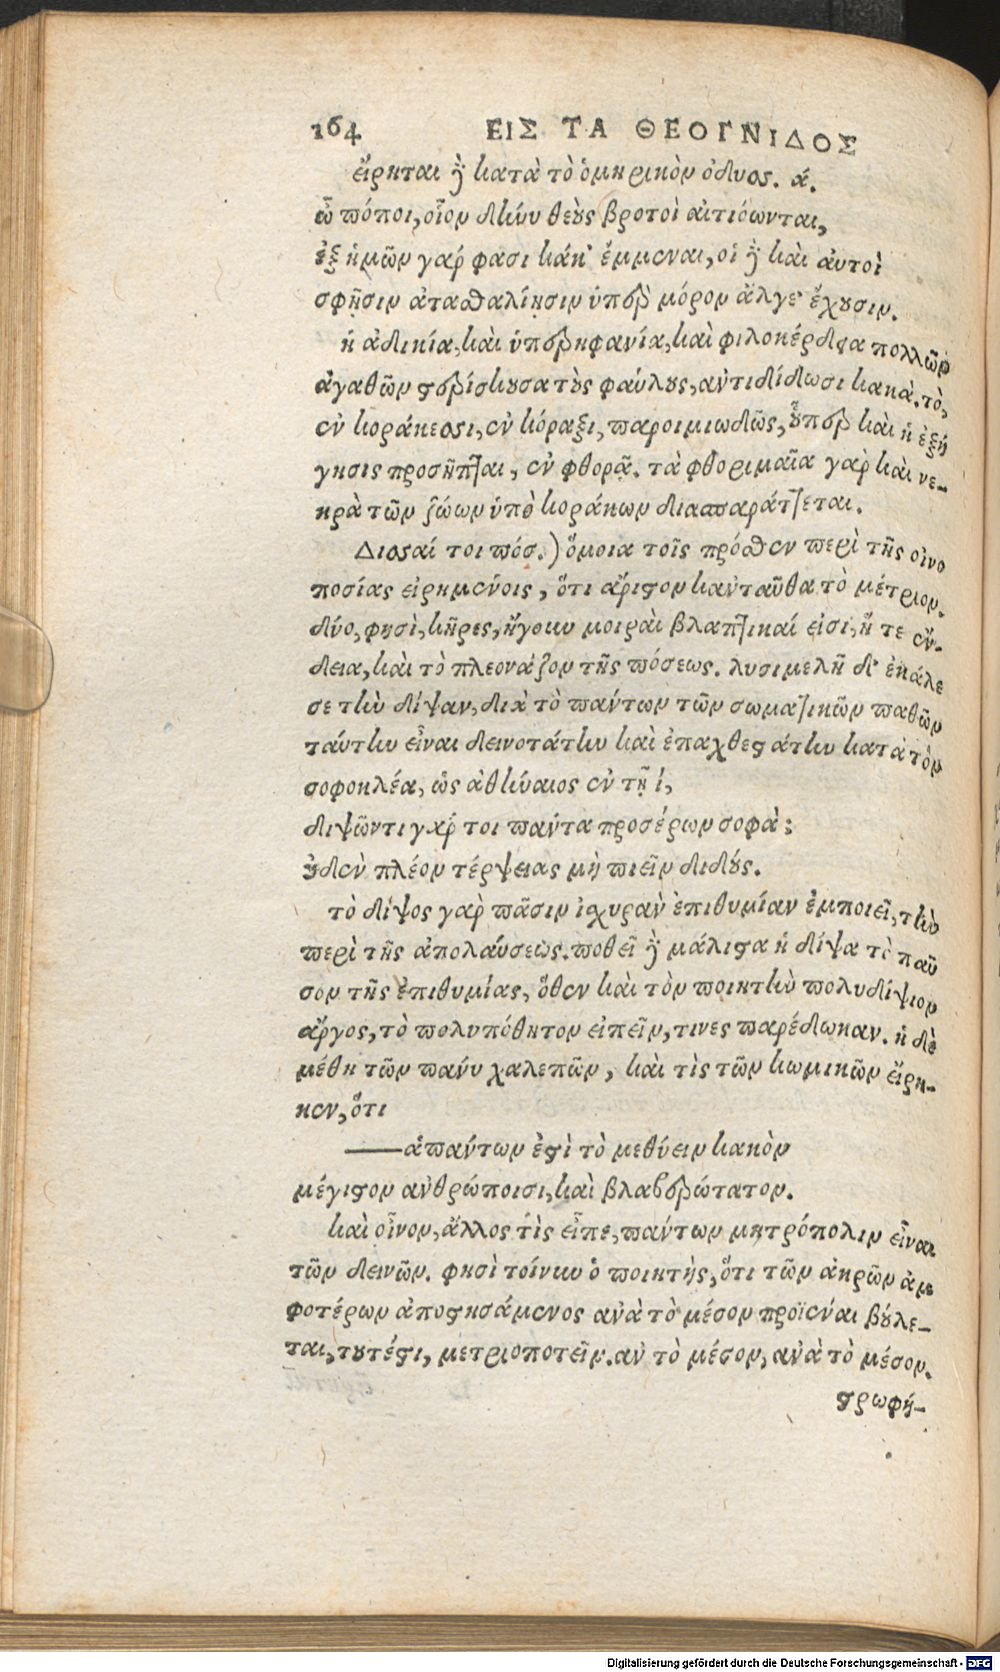 164 ΕΙΣ ΤΑ ΘΕΟΓΝΙΔΟΣ
εἴρηται γὰρ κατὰ τὸ ὁμηρικὸν ὀδυοσ. ά.
ὦ πόποι, οἷον δὴνυ θεοὺς βροτοὶ αἰτιόωνται,
ἐξ ἡμῶν γάρ φασι κάκ' ἔμμεναι, οἱ γὰρ καὶ αὐτοὶ
σφῇσιν ἀτασθαλίῃσιν ὑπὲρ μόρον ἄλγε' ἔχουσιν.
ἡ ἀδικία, καὶ ὑπερηφανία, καὶ φιλοκέρδεια πολλῶν
ἀγαθῶν στερίσκουσα τοὺς φαύλους, ἀντιδίδωσι κακά. τὸ,
ἐν κοράκεσσι, ἐν κόραξι, παροιμιωδῶς, οὗπερ καὶ ἡ ἐξή
γησις προσῆπται, ἐν φθορᾷ. τὰ φθοριμαῖα γὰρ καὶ νε-
κρὰ τῶν ζώων ὑπὸ κοράκων διασπαράττεται.
Δισσαί τοι πόσ.) ὅμοια τοῖς πρόσθεν περὶ τῆς οἰνο
ποσίας εἰρημένοις, ὅτι ἄριστον κἀνταῦθα τὸ μέτριον.
δύο, φησὶ, κῆρες, ἤγουν μοιραὶ βλαπτικαί εἰσι, ἥ τε ἔν-
δεια, καὶ τὸ πλεονάζον τῆς πόσεως. λυσιμελῆ δ' ἐκάλε
σε τὴν δίψαν, διὰ τὸ πάντων τῶν σωματικῶν παθῶν
ταύτην εἶναι δεινοτάτην καὶ ἐπαχθεστάτην κατὰ τὸν
σοφοκλέα, ὡς ἀθήναιος ἐν τῇ ί,
διψῶντι γάρ τοι πάντα προσέρων σοφὰ:
οὐδὲν πλέον τέρψειας μὴ πιεῖν διδούς.
τὸ δίψος γὰρ πᾶσιν ἰσχυρὰν ἐπιθυμίαν ἐμποιεῖ, τὴν
περὶ τῆς ἀπολαύσεως. ποθεῖ γὰρ μάλιστα ἡ δίψα τὸ παῦ
σον τῆς ἐπιθυμίας, ὅθεν καὶ τὸν ποιητὴν πολυδίψιον
ἄργος, τὸ πολυπόθητον εἰπεῖν, τινες παρέδωκαν. ἡ δὲ
μέθη τῶν πάνυ χαλεπῶν, καὶ τὶς τῶν κωμικῶν εἴρη-
κεν, ὅτι
——ἁπάντων ἐστὶ τὸ μεθύειν κακὸν
μέγιστον ἀνθρώποισι, καὶ βλαβερώτατον.
καὶ οἶνον, ἄλλος τὶς εἶπε, πάντων μητρόπολιν εἶναι
τῶν δεινῶν. φησὶ τοίνυν ὁ ποιητὴς, ὅτι τῶν ἀκρῶν ἀμ
φοτέρων ἀποστησάμενος ἀνὰ τὸ μέσον προϊέναι βούλε-
ται, τουτέστι, μετριοποτεῖν. ἀν τὸ μέσον, ἀνὰ τὸ μέσον.
στρωφή-
Digitalisierung gefördert durch die Deutsche Forschungsgemeinschaft - DFG